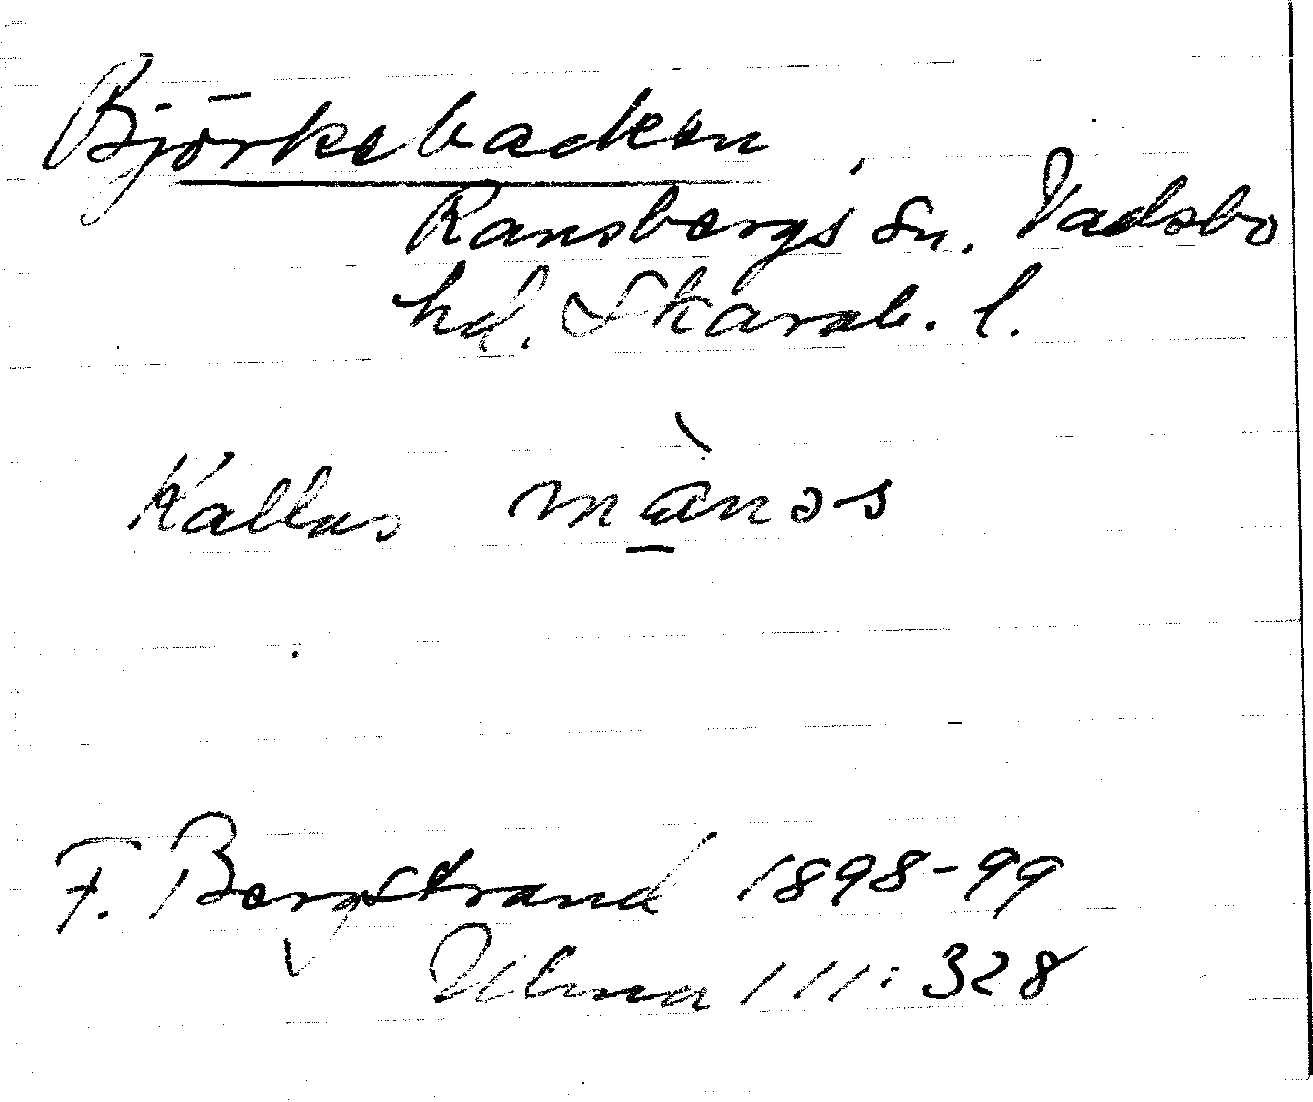 Björkebacken,
Ransbergs sn. Vadsbo
hd. Skarab. l.
Kallas
F. Bergstrand 1898-99
Ulma 111:328